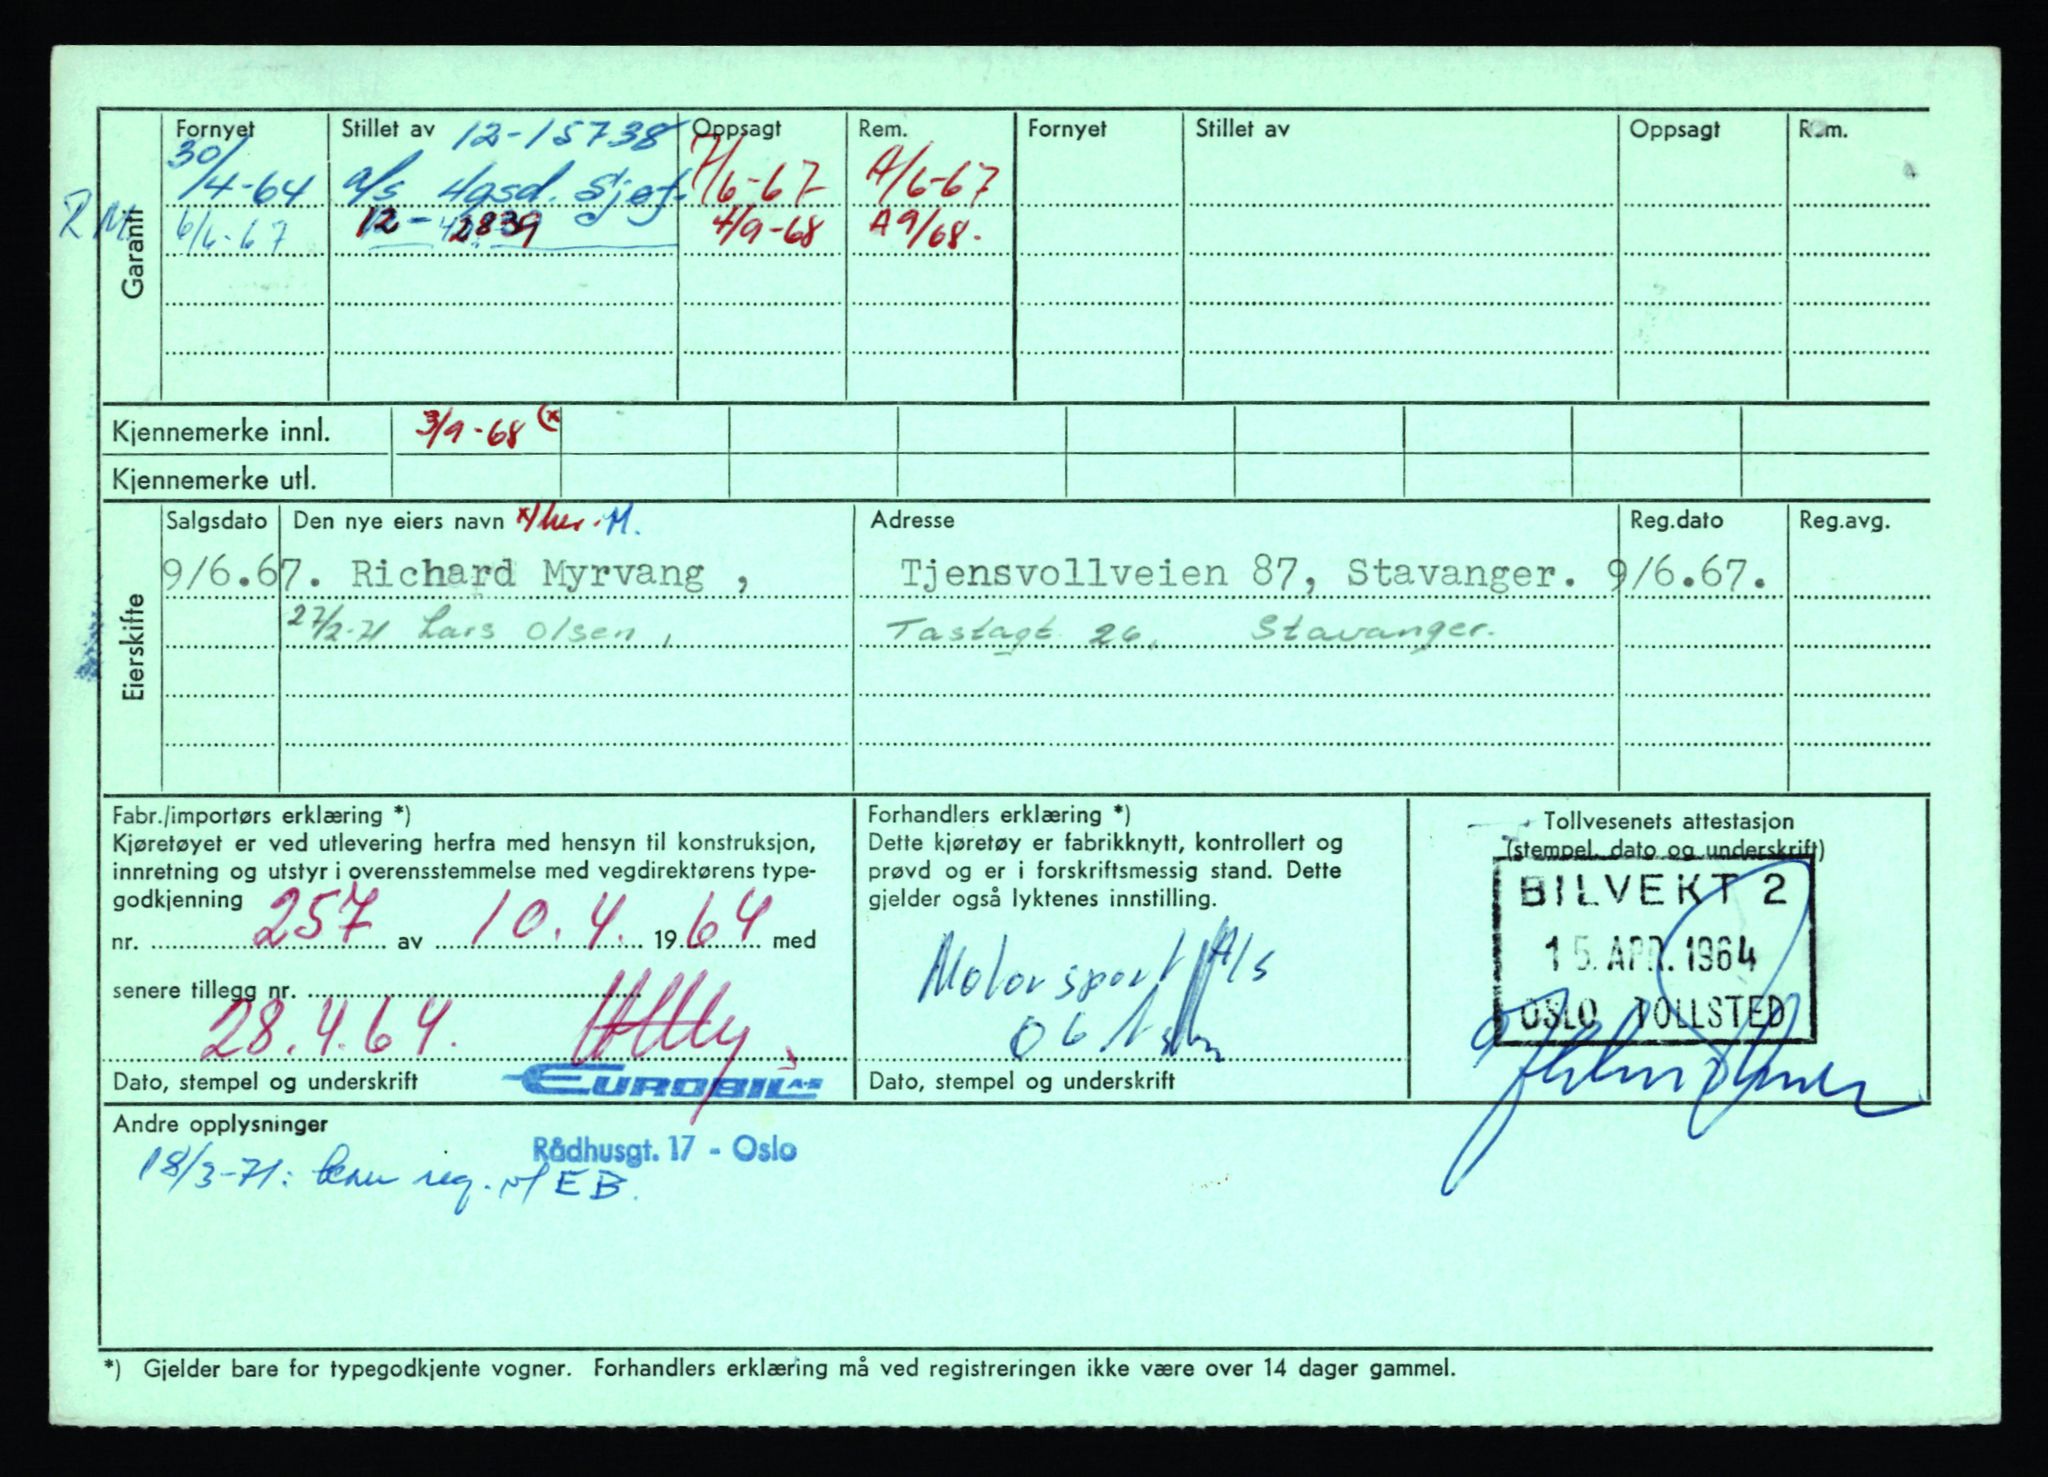 Garanti
Fornyet Stillet av Oppsagt Rem. Fornyet Stillet av Oppsagt Rem.
12-15738
30/4-64 a/s 7/6-67 A/6-67
6/6-67 12- 2839 4/9-68 A 9/68.
Kjennemerke innl. 3/9-68 (x
Kjennemerke utl.
Eierskifte
Salgsdato Den nye eiers navn Adresse Reg.dato Reg.avg.
9/6.67. Richard Myrvang , Tjensvollveien 87, Stavanger. 9/6.67.
27/2-71 Lars Olsen, Tastagt 26, Stavanger.
Fabr./importørs erklæring *)
Kjøretøyet er ved utlevering herfra med hensyn til konstruksjon,
innretning og utstyr i overensstemmelse med vegdirektørens type-
godkjenning
nr. 257 av 10.4. 1964 med
senere tillegg nr.
28.4.64.
Dato, stempel og underskrift
EUROBIL A-S
Rådhusgt. 17 - Oslo
Forhandlers erklæring *)
Dette kjøretøy er fabrikknytt, kontrollert og
prøvd og er i forskriftsmessig stand. Dette
gjelder også lyktenes innstilling.
Motorsport A/S
Dato, stempel og underskrift
Tollvesenets attestasjon
(stempel, dato og underskrift)
BILVEKT 2
15. APR. 1964
OSLO TOLLSTED
Andre opplysninger
18/3-71: reg. EB.
*) Gjelder bare for typegodkjente vogner. Forhandlers erklæring må ved registreringen ikke være over 14 dager gammel.